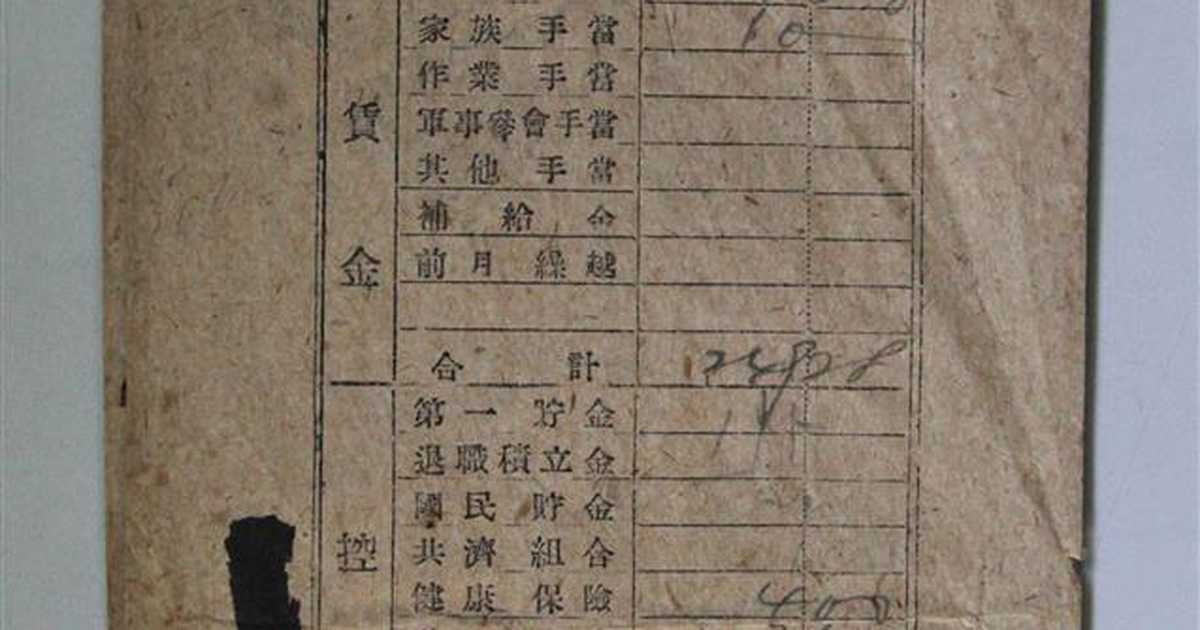 賃金
家族手當 10
作業手當
軍事參會手當
其他手當
補給金
前月繰越
合計
控
第一貯金
退職積立金
國民貯金
共濟組合
健康保險